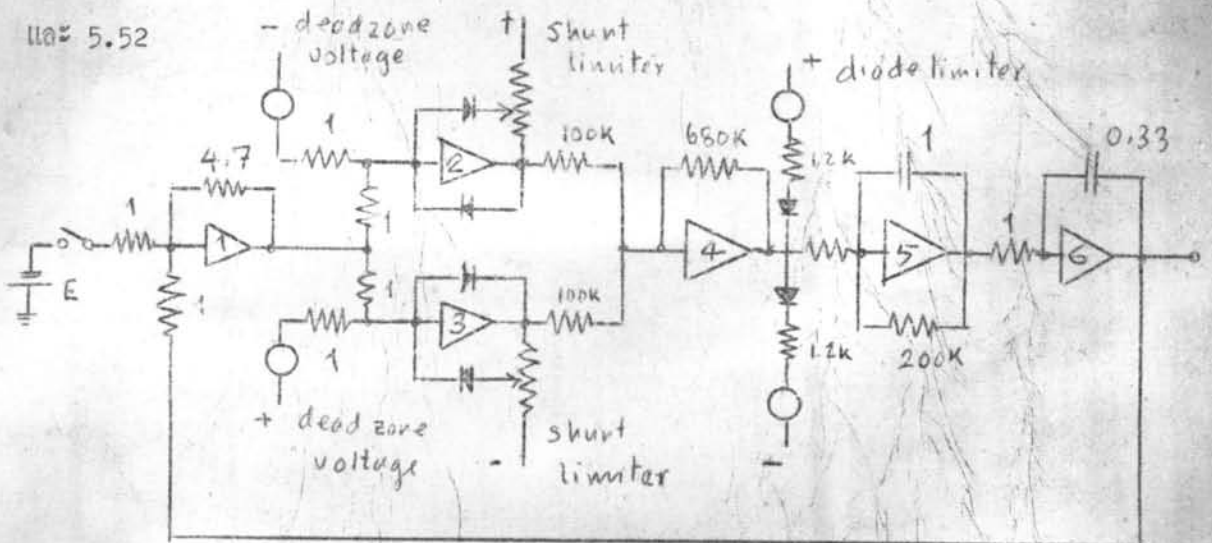 และ 5.52
- deadzone voltage
+ shunt limiter
+ diode limiter
1
4.7
1
2
100K
680K
1.2K
1
0.33
1
1
4
5
1
6
E
1
1
3
100K
1.2K
200K
1
+ dead zone voltage
- shunt limiter
-